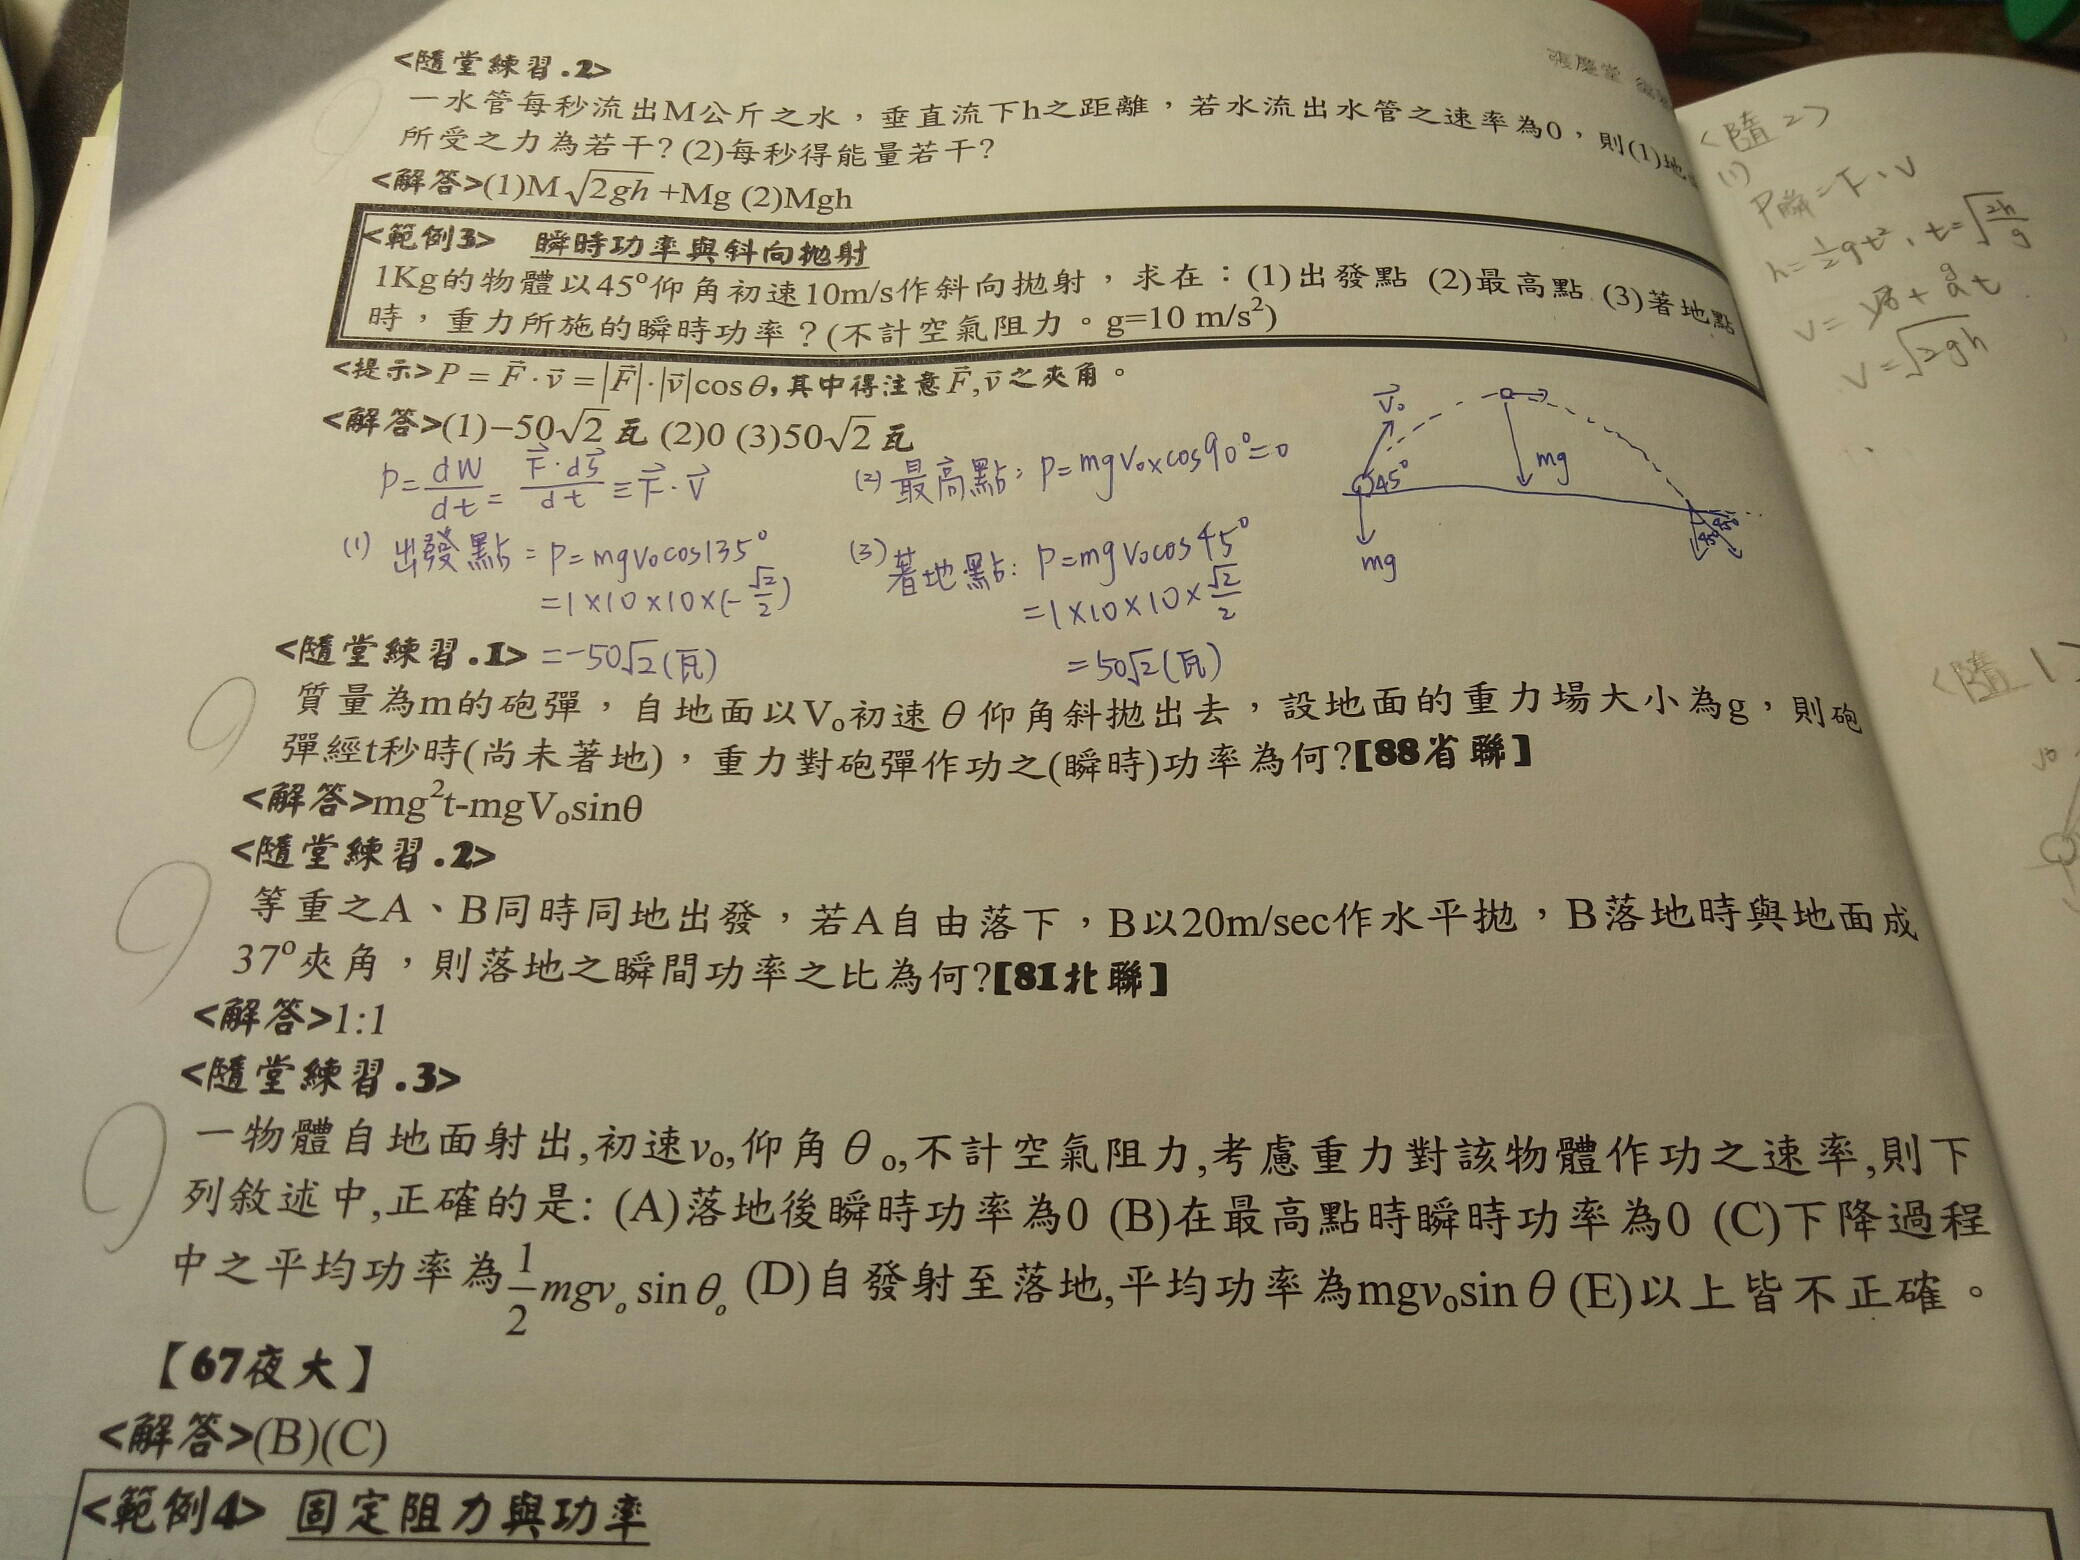 <隨堂練習.2>
一水管每秒流出M公斤之水，垂直流下h之距離，若水流出水管之速率為0，則(1)地
所受之力為若干? (2)每秒得能量若干?
<解答>(1)M√2gh +Mg (2)Mgh
張慶堂
<範例3> 瞬時功率與斜向拋射
1Kg的物體以45°仰角初速10m/s作斜向拋射，求在：(1)出發點 (2)最高點 (3)著地點
時，重力所施的瞬時功率？(不計空氣阻力。g=10 m/s²)
<提示>P = F⃗ · v⃗ = |F⃗| · |v⃗| cos θ, 其中得注意 F⃗, v⃗ 之夾角。
<解答>(1)−50√2 瓦 (2)0 (3)50√2 瓦
P = dW/dt = F⃗·dS⃗/dt = F⃗·V⃗
(1) 出發點 = P = mgv₀cos135°
= 1×10×10×(-√2/2)
= -50√2 (瓦)
(2) 最高點: P = mgv₀ₓcos90° = 0
(3) 著地點: P = mgv₀cos45°
= 1×10×10×√2/2
= 50√2 (瓦)
V⃗₀
45°
mg
mg
45°
<隨堂練習.1>
質量為m的砲彈，自地面以V₀初速θ仰角斜拋出去，設地面的重力場大小為g，則砲
彈經t秒時(尚未著地)，重力對砲彈作功之(瞬時)功率為何?[88省聯]
<解答>mg²t-mgV₀sinθ
<隨堂練習.2>
等重之A、B同時同地出發，若A自由落下，B以20m/sec作水平拋，B落地時與地面成
37°夾角，則落地之瞬間功率之比為何?[81北聯]
<解答>1:1
<隨堂練習.3>
一物體自地面射出,初速v₀,仰角θ₀,不計空氣阻力,考慮重力對該物體作功之速率,則下
列敘述中,正確的是: (A)落地後瞬時功率為0 (B)在最高點時瞬時功率為0 (C)下降過程
中之平均功率為 1/2 mgv₀ sin θ₀ (D)自發射至落地,平均功率為mgv₀sinθ (E)以上皆不正確。
【67夜大】
<解答>(B)(C)
<範例4> 固定阻力與功率
<隨2>
(1)
P瞬 = F·V
h = ½gt², t = √2h/g
V = V₀ + at
V = √2gh
<隨1>
v₀